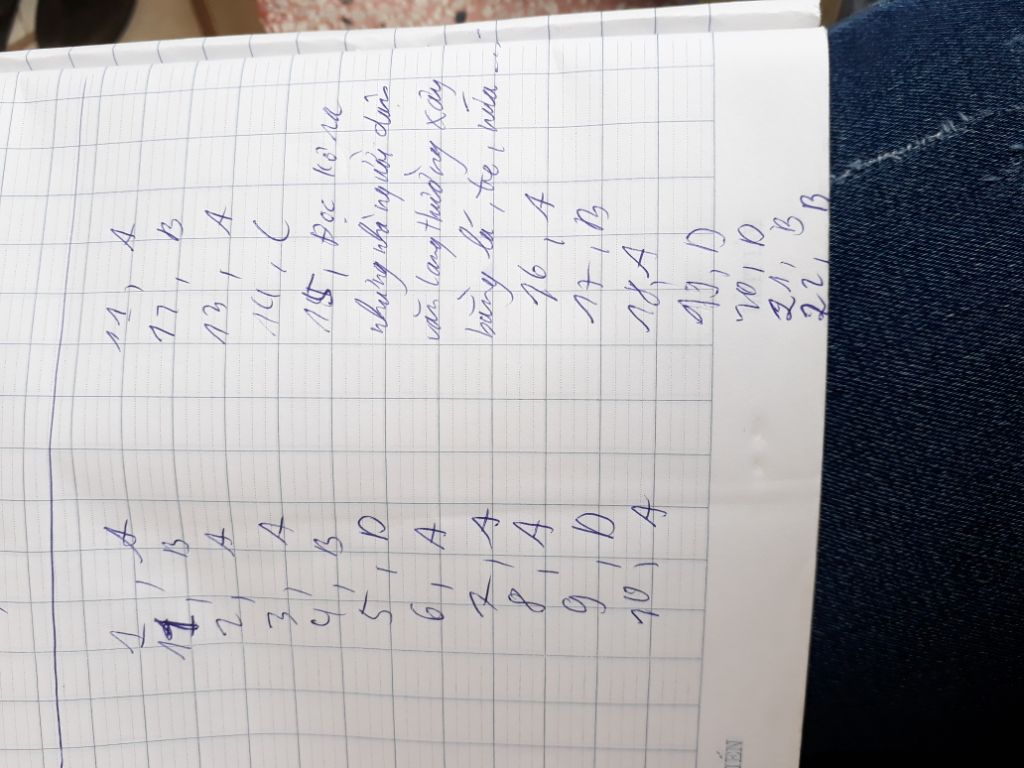 1, A
11, B
2, A
3, A
4, B
5, D
6, A
7, A
8, A
9, D
10, A
11, A
12, B
13, A
14, C
15, Đọc kể ra
những nhà người dân
văn Lang thường xây
bằng lá, tre, nứa...
16, A
17, B
18, A
19, D
20, D
21, B
22, B
IẾN